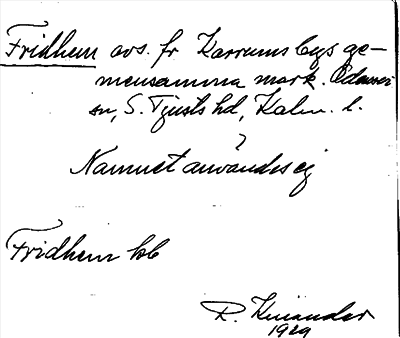 Fridhem avs. fr Karrums bys ge-
mensamma mark. Odensvi
sn, S. Tjusts hd, Kalm. l.
Namnet användes ej
Fridhem hb
R. Kinander
1929